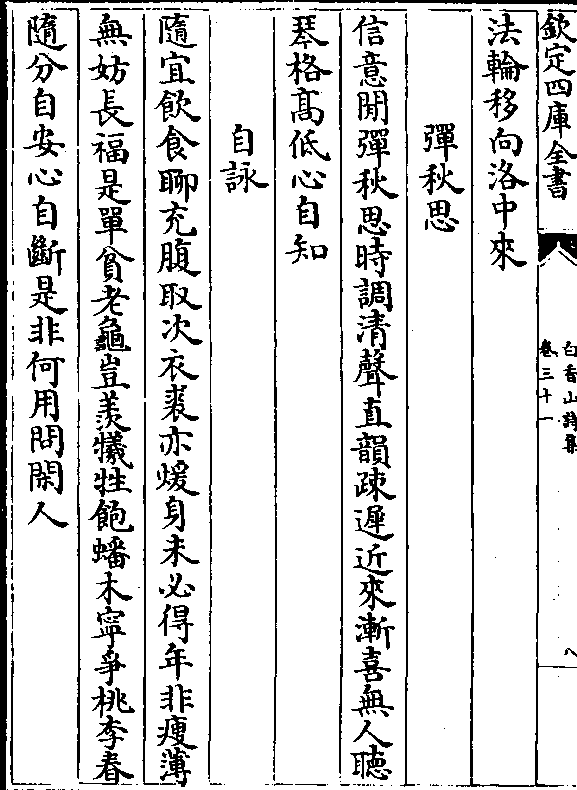 欽定四庫全書
白香山詩集
卷三十一
八
法輪移向洛中來
彈秋思
信意閒彈秋思時調清聲直韻疎遲近來漸喜無人聽
琴格髙低心自知
自詠
隨宜飲食聊充腹取次衣裘亦煖身未必得年非瘦薄
無妨長福是單貧老龜豈羡犧牲飽蟠木寜爭桃李春
隨分自安心自斷是非何用問閑人